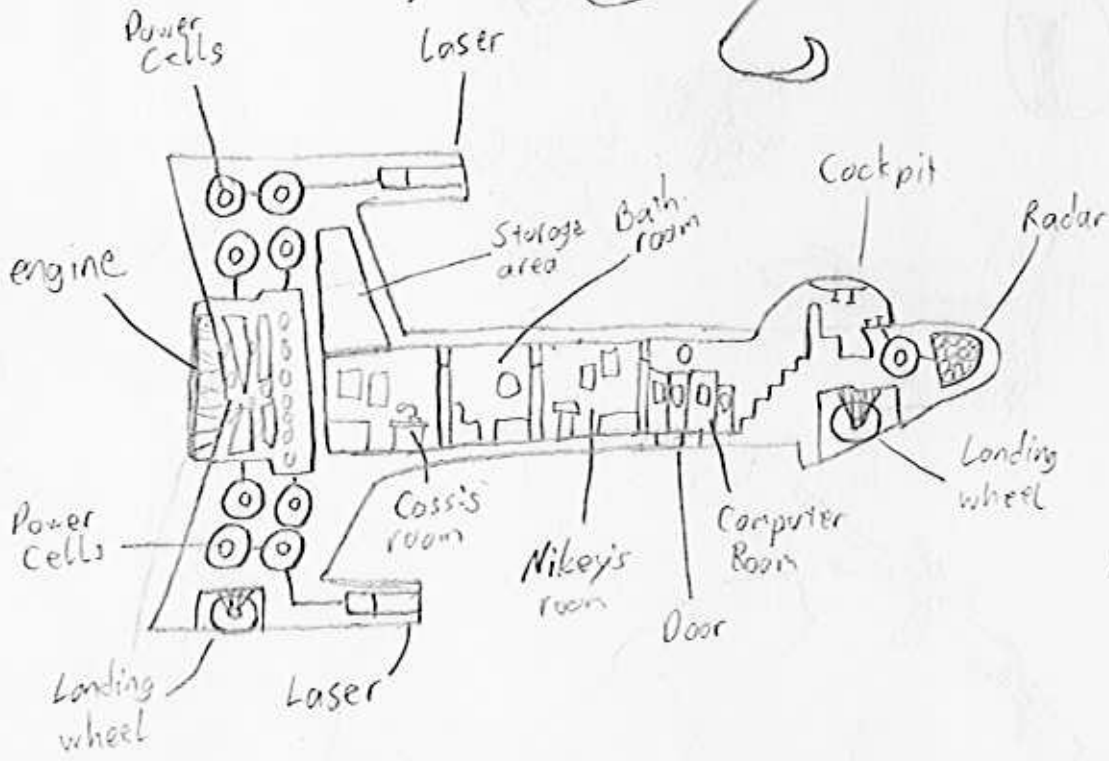 Power
Cells
Laser
Cockpit
Radar
Storage
area
Bath-
room
engine
Landing
wheel
Power
Cells
Cassis
room
Nikey's
room
Computer
Room
Door
Landing
wheel
Laser